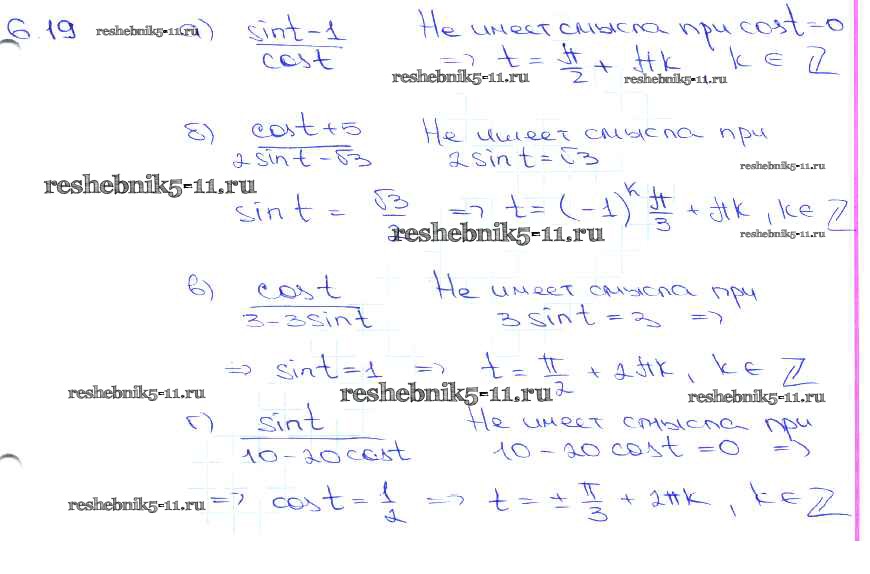 6.19 reshebnik5-11.ru а) (sint-1)/cost Не имеет смысла при cost=0
=> t = π/2 + πk k ∈ Z
reshebnik5-11.ru reshebnik5-11.ru
б) (cost+5)/(2sint-√3) Не имеет смысла при
2sint=√3
reshebnik5-11.ru
reshebnik5-11.ru
sint = √3/2 => t = (-1)^k π/3 + πk, k∈Z
reshebnik5-11.ru reshebnik5-11.ru
в) cost/(3-3sint) Не имеет смысла при
3sint=3 =>
=> sint=1 => t = π/2 + 2πk, k ∈ Z
reshebnik5-11.ru reshebnik5-11.ru reshebnik5-11.ru
г) sint/(10-20cost) Не имеет смысла при
10-20cost=0 =>
reshebnik5-11.ru => cost = 1/2 => t = ± π/3 + 2πk, k∈Z